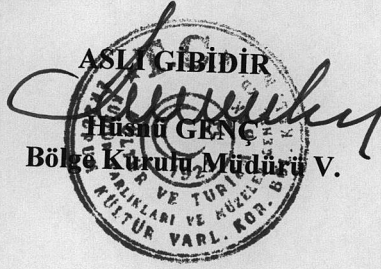 ASLI GİBİDİR
Hüsnü GENÇ
Bölge Kurulu Müdürü V.
T.C.
KÜLTÜR VE TURİZM
VARLIKLARI VE MÜZELER GEN
KÜLTÜR VARL. KOR. BÖL. K